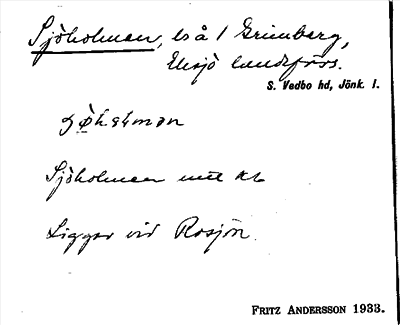 Sjöholmen, ls å / Grimberg,
Eksjö landsförs.
S. Vedbo hd, Jönk. l.
Sjöholmen
Ligger vid Rosjön.
FRITZ ANDERSSON 1933.